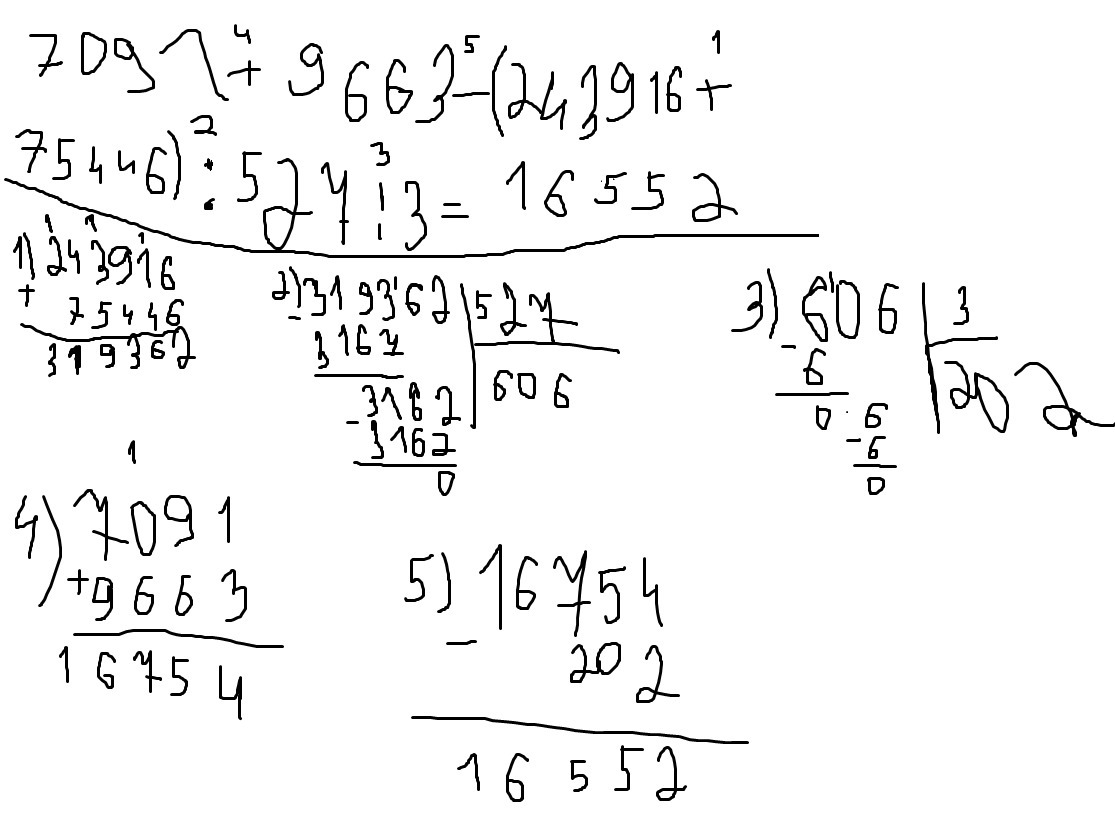 7091 + 9663 - (243916 +
4 5 1
75446) : 527 : 3 = 16552
2 3
1) 243916
+ 75446
319362
2) 319362 | 527
- 3162 | 606
- 3162
3162
0
3) 606 | 3
- 6 | 202
0 6
- 6
0
1
4) 7091
+ 9663
16754
5) 16754
- 202
16552